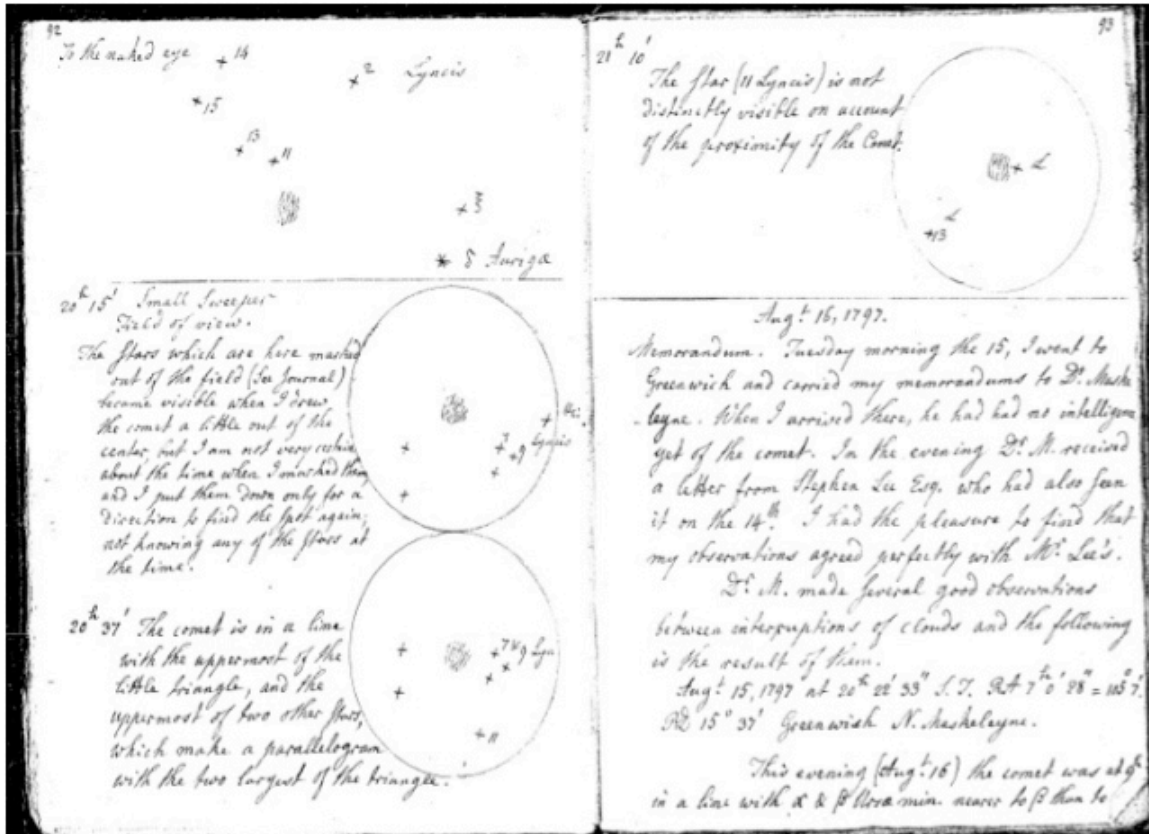 92
To the naked eye
14
2
Lyncis
15
13
11
ξ
δ Aurigæ
20h 15' Small Sweeper
Field of view.
The Stars which are here marked
out of the field (See Journal)
became visible when I drew
the comet a little out of the
center, but I am not very certain
about the time when I marked them,
and I put them down only for a
direction to find the spot again;
not knowing any of the Stars at
the time.
9 Lyncis
20h 37' The comet is in a line
with the uppermost of the
little triangle, and the
uppermost of two other Stars,
which make a parallelogram
with the two largest of the triangle.
9 Lyn
11
93
21h 10'
The Star (11 Lyncis) is not
distinctly visible on account
of the proximity of the Comet.
L
13 L
Augt. 16, 1797.
Memorandum. Tuesday morning the 15, I went to
Greenwich and carried my memorandums to Dr. Maske
-leyne. When I arrived there, he had had no intelligence
yet of the comet. In the evening Dr. M. received
a letter from Stephen Lee Esq. who had also seen
it on the 14th. I had the pleasure to find that
my observations agreed perfectly with Mr. Lee's.
Dr. M. made several good observations
between interruptions of clouds and the following
is the result of them.
Augt. 15, 1797 at 20h 22' 33" S.T. RA 7h 0' 28" = 105° 7'.
PD 15° 37' Greenwich N. Maskeleyne.
This evening (Augt. 16) the comet was at 9h
in a line with α & β Ursæ min. nearer to β than to